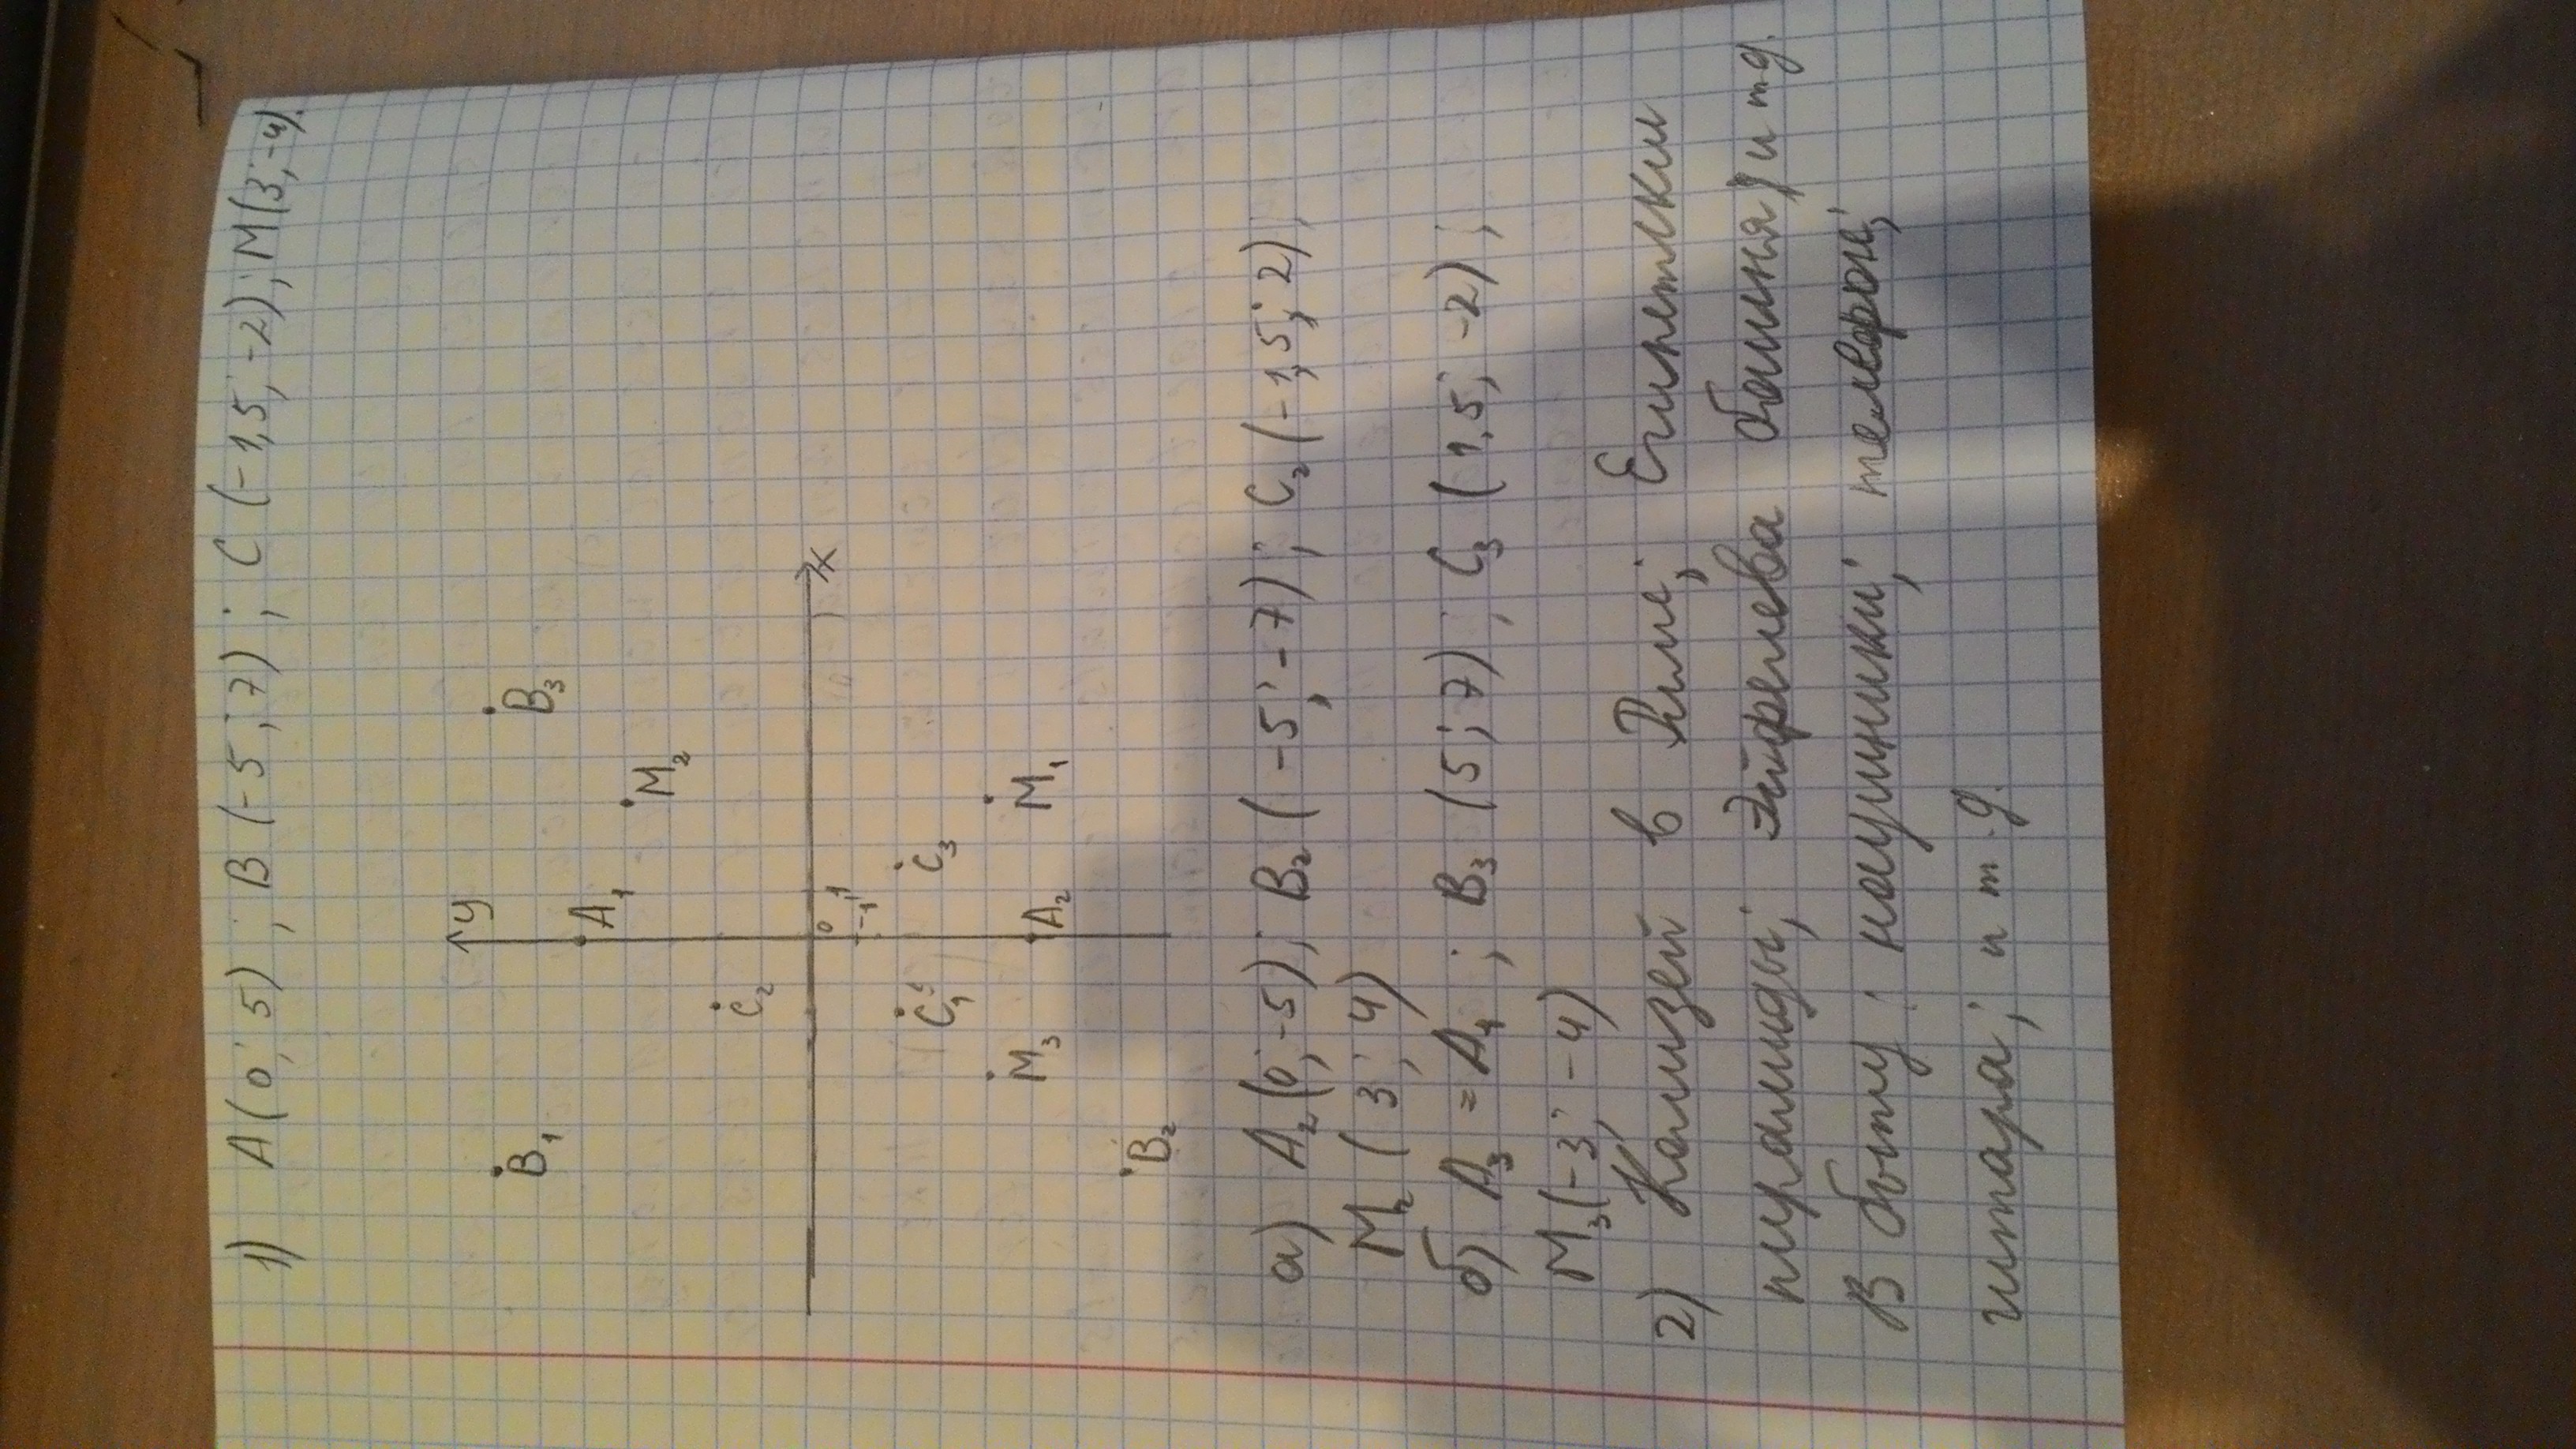 1) A(0; 5); B(-5; 7); C(-1,5; -2); M(3; -4).
y
B₁
B₃
A₁
M₂
C₂
0
x
-1
1
C₁
C₃
M₃
M₁
A₂
B₂
а) A₂(0; -5); B₂(-5; -7); C₂(-1,5; 2);
M₂(3; 4)
б) A₃ = A₁; B₃(5; 7); C₃(1,5; -2);
M₃(-3; -4)
2) Колизей в Риме; Египетские
пирамиды; Эйфелева башня и тд.
В быту: наушники; телефон;
гитара; и т.д.